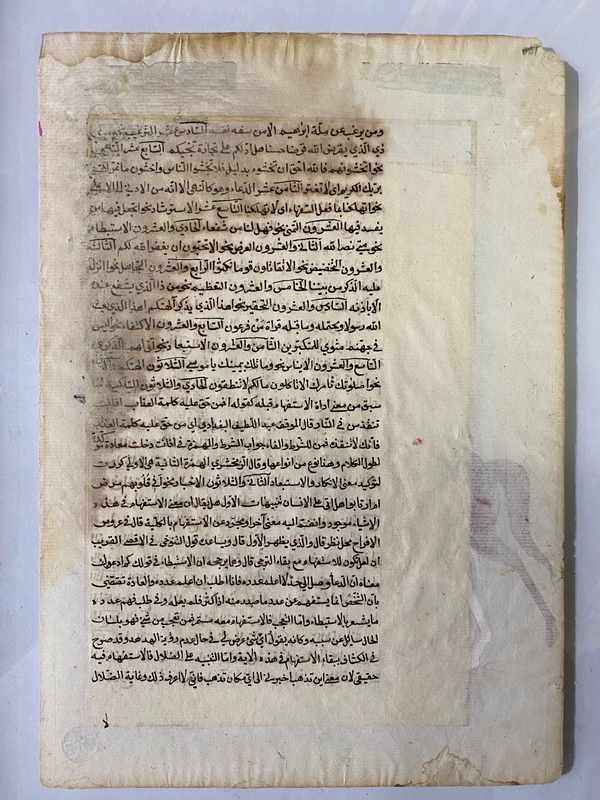 ومن يرغب عن ملة ابرهيم الا من سفه نفسه السادس عشر الترغيب نحو من
ذي الذي يقرض الله قرضا حسنا هل ادلكم على تجارة تنجيكم السابع عشر النهي
نحو اتخشونهم فالله احق ان تخشوه بدليل فلا تخشوا الناس واخشون ما غرك
بربك الكريم اي لا تغتر الثامن عشر الدعاء وهو كالنهي الا انه من الادنى الى الاعلى
نحو اتهلكنا بما فعل السفهاء اي لا تهلكنا التاسع عشر الاسترشاد نحو اتجعل فيها من
يفسد فيها العشرون التمني نحو فهل لنا من شفعاء الحادي والعشرون الاستبطاء
نحو متى نصر الله الثاني والعشرون العرض نحو الا تحبون ان يغفر الله لكم الثالث
والعشرون التحضيض نحو الا تقاتلون قوما نكثوا الرابع والعشرون التجاهل نحو اانزل
عليه الذكر من بيننا الخامس والعشرون التعظيم نحو من ذا الذي يشفع عنده
الا باذنه السادس والعشرون التحقير نحو اهذا الذي يذكر الهتكم اهذا الذي بعث
الله رسولا ويحتمله وما قبله قراة من فرعون السابع والعشرون الاكتفاء نحو اليس
في جهنم مثوى للمتكبرين الثامن والعشرون الاستبعاد نحو انى لهم الذكرى
التاسع والعشرون الايناس نحو وما تلك بيمينك يا موسى الثلاثون التهكم
نحو اصلوتك تامرك الا تاكلون مالكم لا تنطقون الحادي والثلاثون التاكيد لما
سبق من معنى اداة الاستفهام قبله كقوله افمن حق عليه كلمة العذاب افانت
تنقذ من في النار قال الموفق عبد اللطيف البغدادي اي من حق عليه كلمة العذاب
فانك لا تنقذه فمن للشرط والفاء جواب الشرط والهمزة في افانت دخلت معادة
لطول الكلام وهذا نوع من انواعها وقال الزمخشري الهمزة الثانية هي الاولى كررت
لتوكيد معنى الانكار والاستبعاد الثاني والثلاثون الاخبار نحو افي قلوبهم مرض
ام ارتابوا هل اتى على الانسان تنبيهات الاول هل يقال ان معنى الاستفهام في هذه
الاشياء موجود وانضم اليه معنى اخر او مجرد عن الاستفهام بالكلية قال في عروس
الافراح محل نظر قال والذي يظهر الاول قال ويساعده قول التنوخي في الاقصى القريب
ان لعل تكون للاستفهام مع بقاء الترجي قال ومما يرجحه ان الاستبطاء في قولك كم ادعوك
معناه ان الدعاء وصل الى حد لا اعلم عدده فانا اطلب ان اعلم عدده والعادة تقتضي
بان الشخص انما يستفهم عن عدد ما صدر منه اذا كثر فلم يعلمه وفي طلب فهم عدده
ما يشعر بالاستبطاء واما التعجب فالاستفهام معه مستمر فمن تعجب من شيء فهو بلسان
الحال سائل عن سببه وكانه يقول اي شيء عرض لي في حال عدم رؤية الهدهد وقد صرح
في الكشاف ببقاء الاستفهام في هذه الاية واما التنبيه على الضلال فالاستفهام فيه
حقيقي لان معنى اين تذهب اخبرني الى اي مكان تذهب فاني لا اعرف ذلك وغاية الضلال
لا